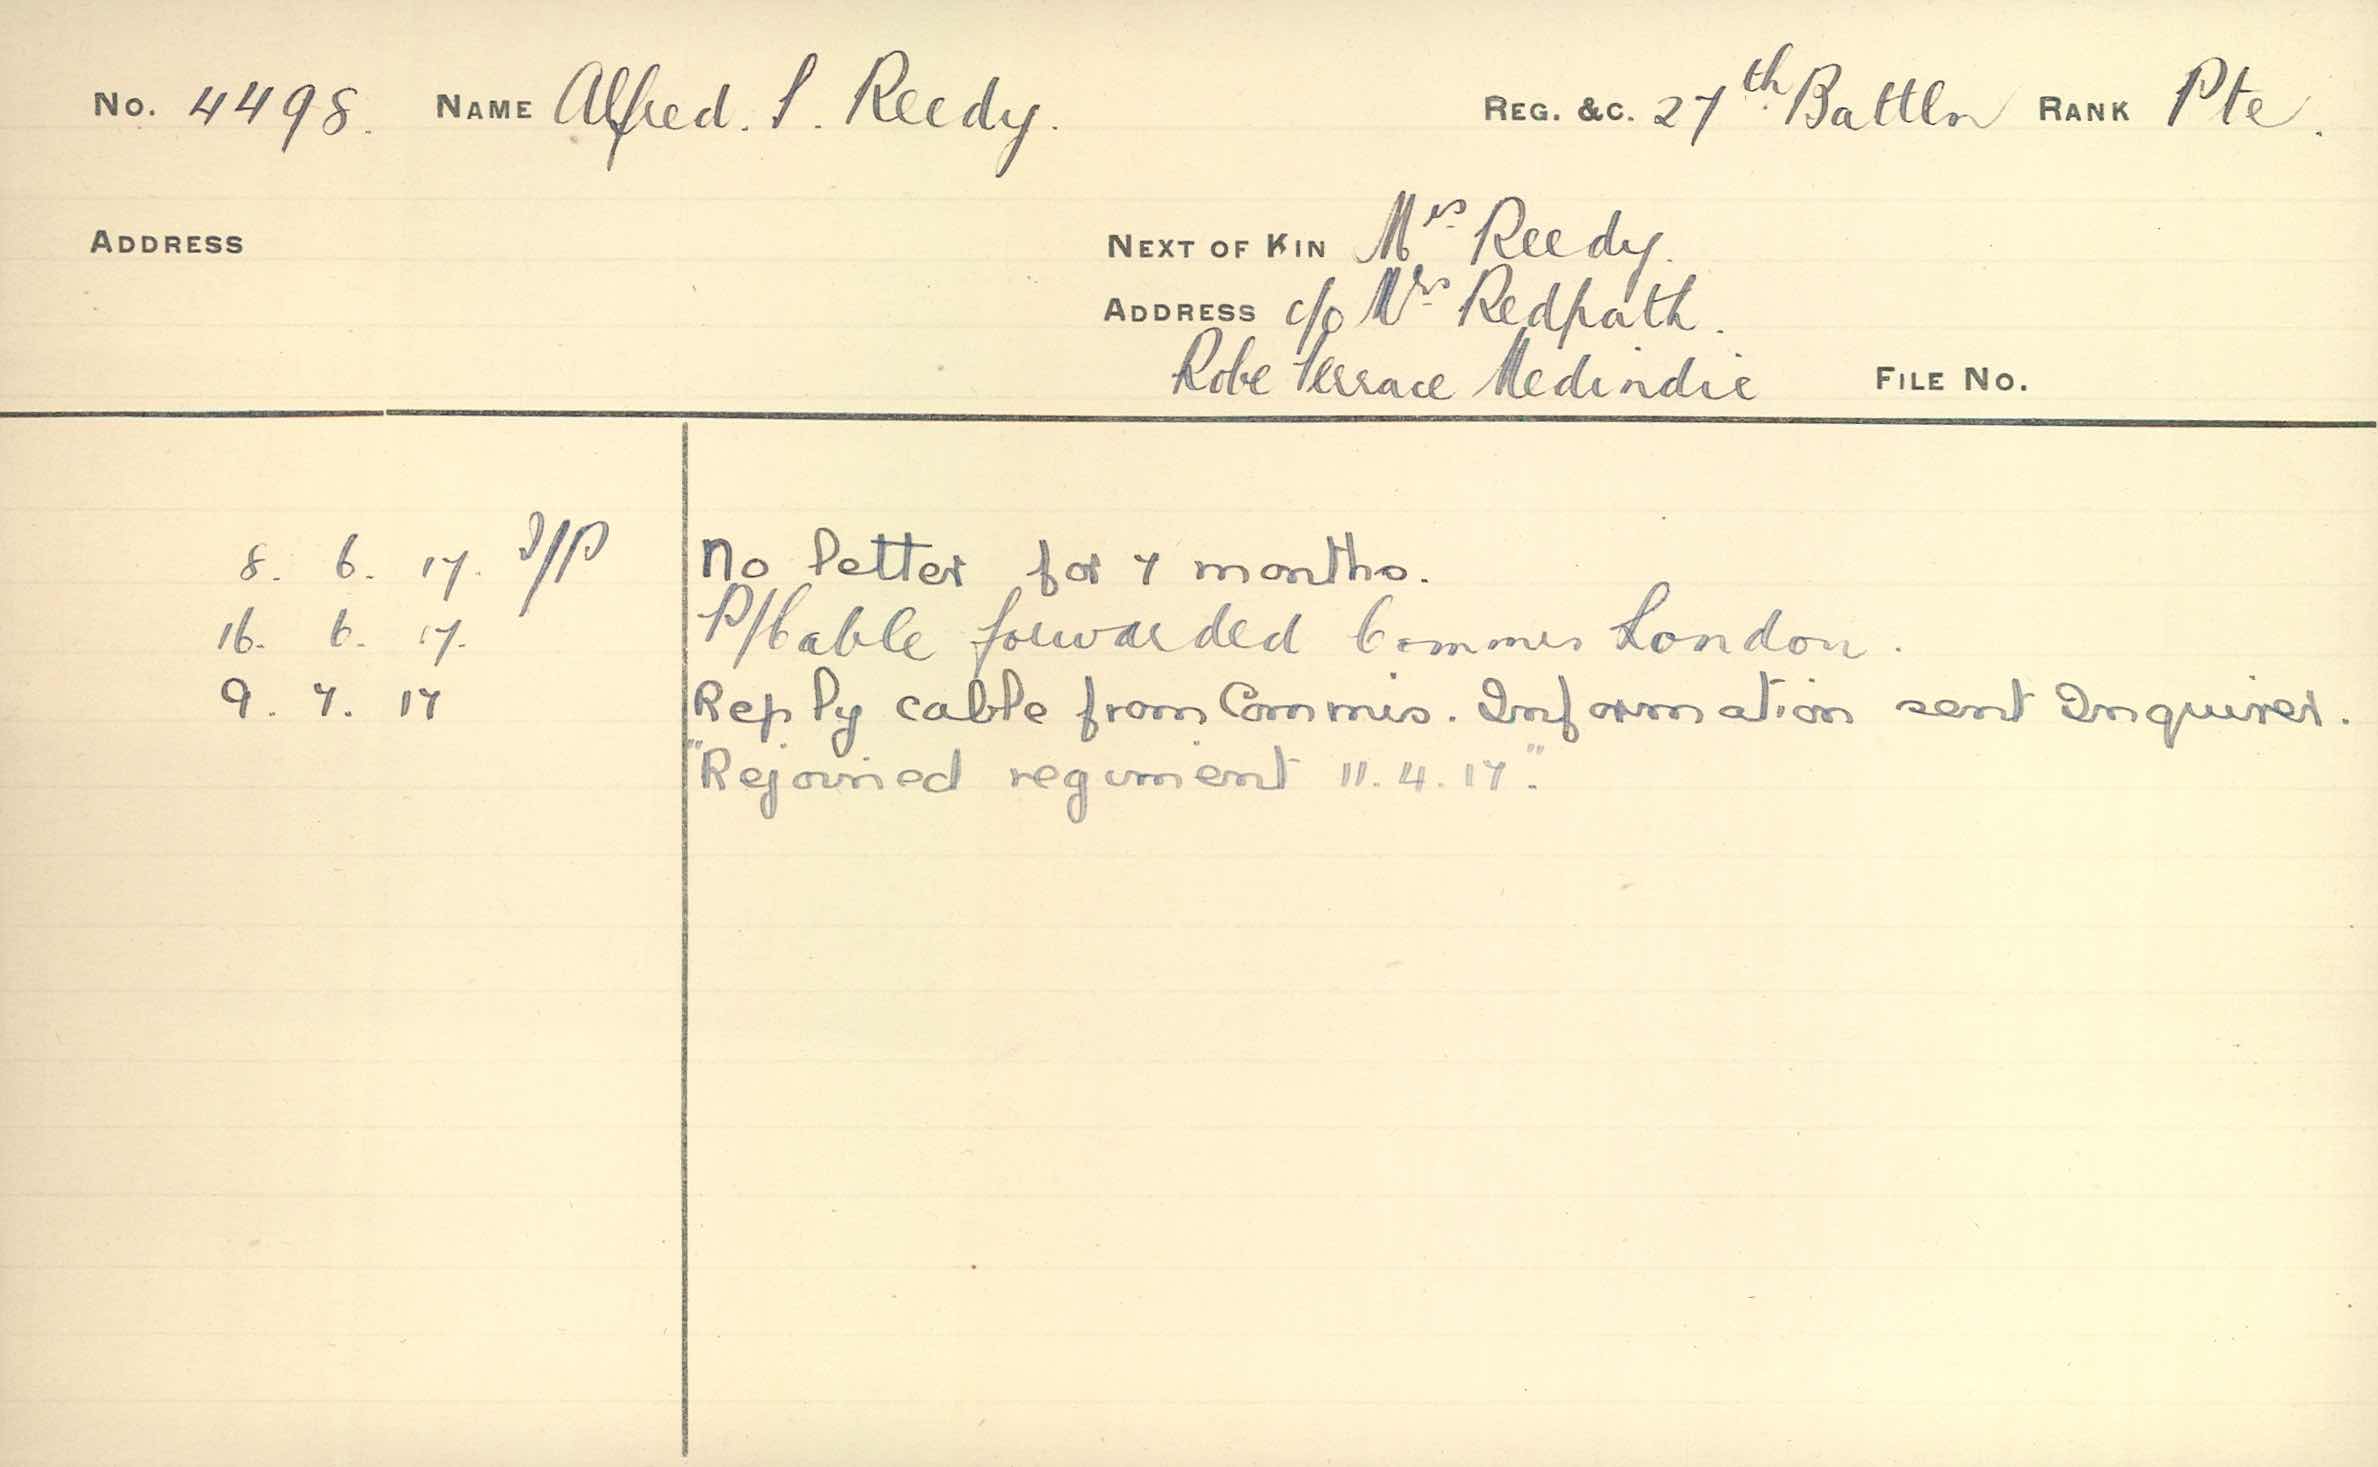 No. 4498. NAME Alfred. S. Reedy. REG. &C. 27th Battln RANK Pte.
ADDRESS NEXT OF KIN Mrs Reedy.
ADDRESS c/o Mrs Redpath.
Robe Terrace Medindie FILE No.
8. 6. 17. I/P No letter for 7 months.
16. 6. 17. P/Cable forwarded Commis London.
9. 7. 17 Reply cable from Commis. Information sent Inquirer.
"Rejoined regiment 11.4.17."